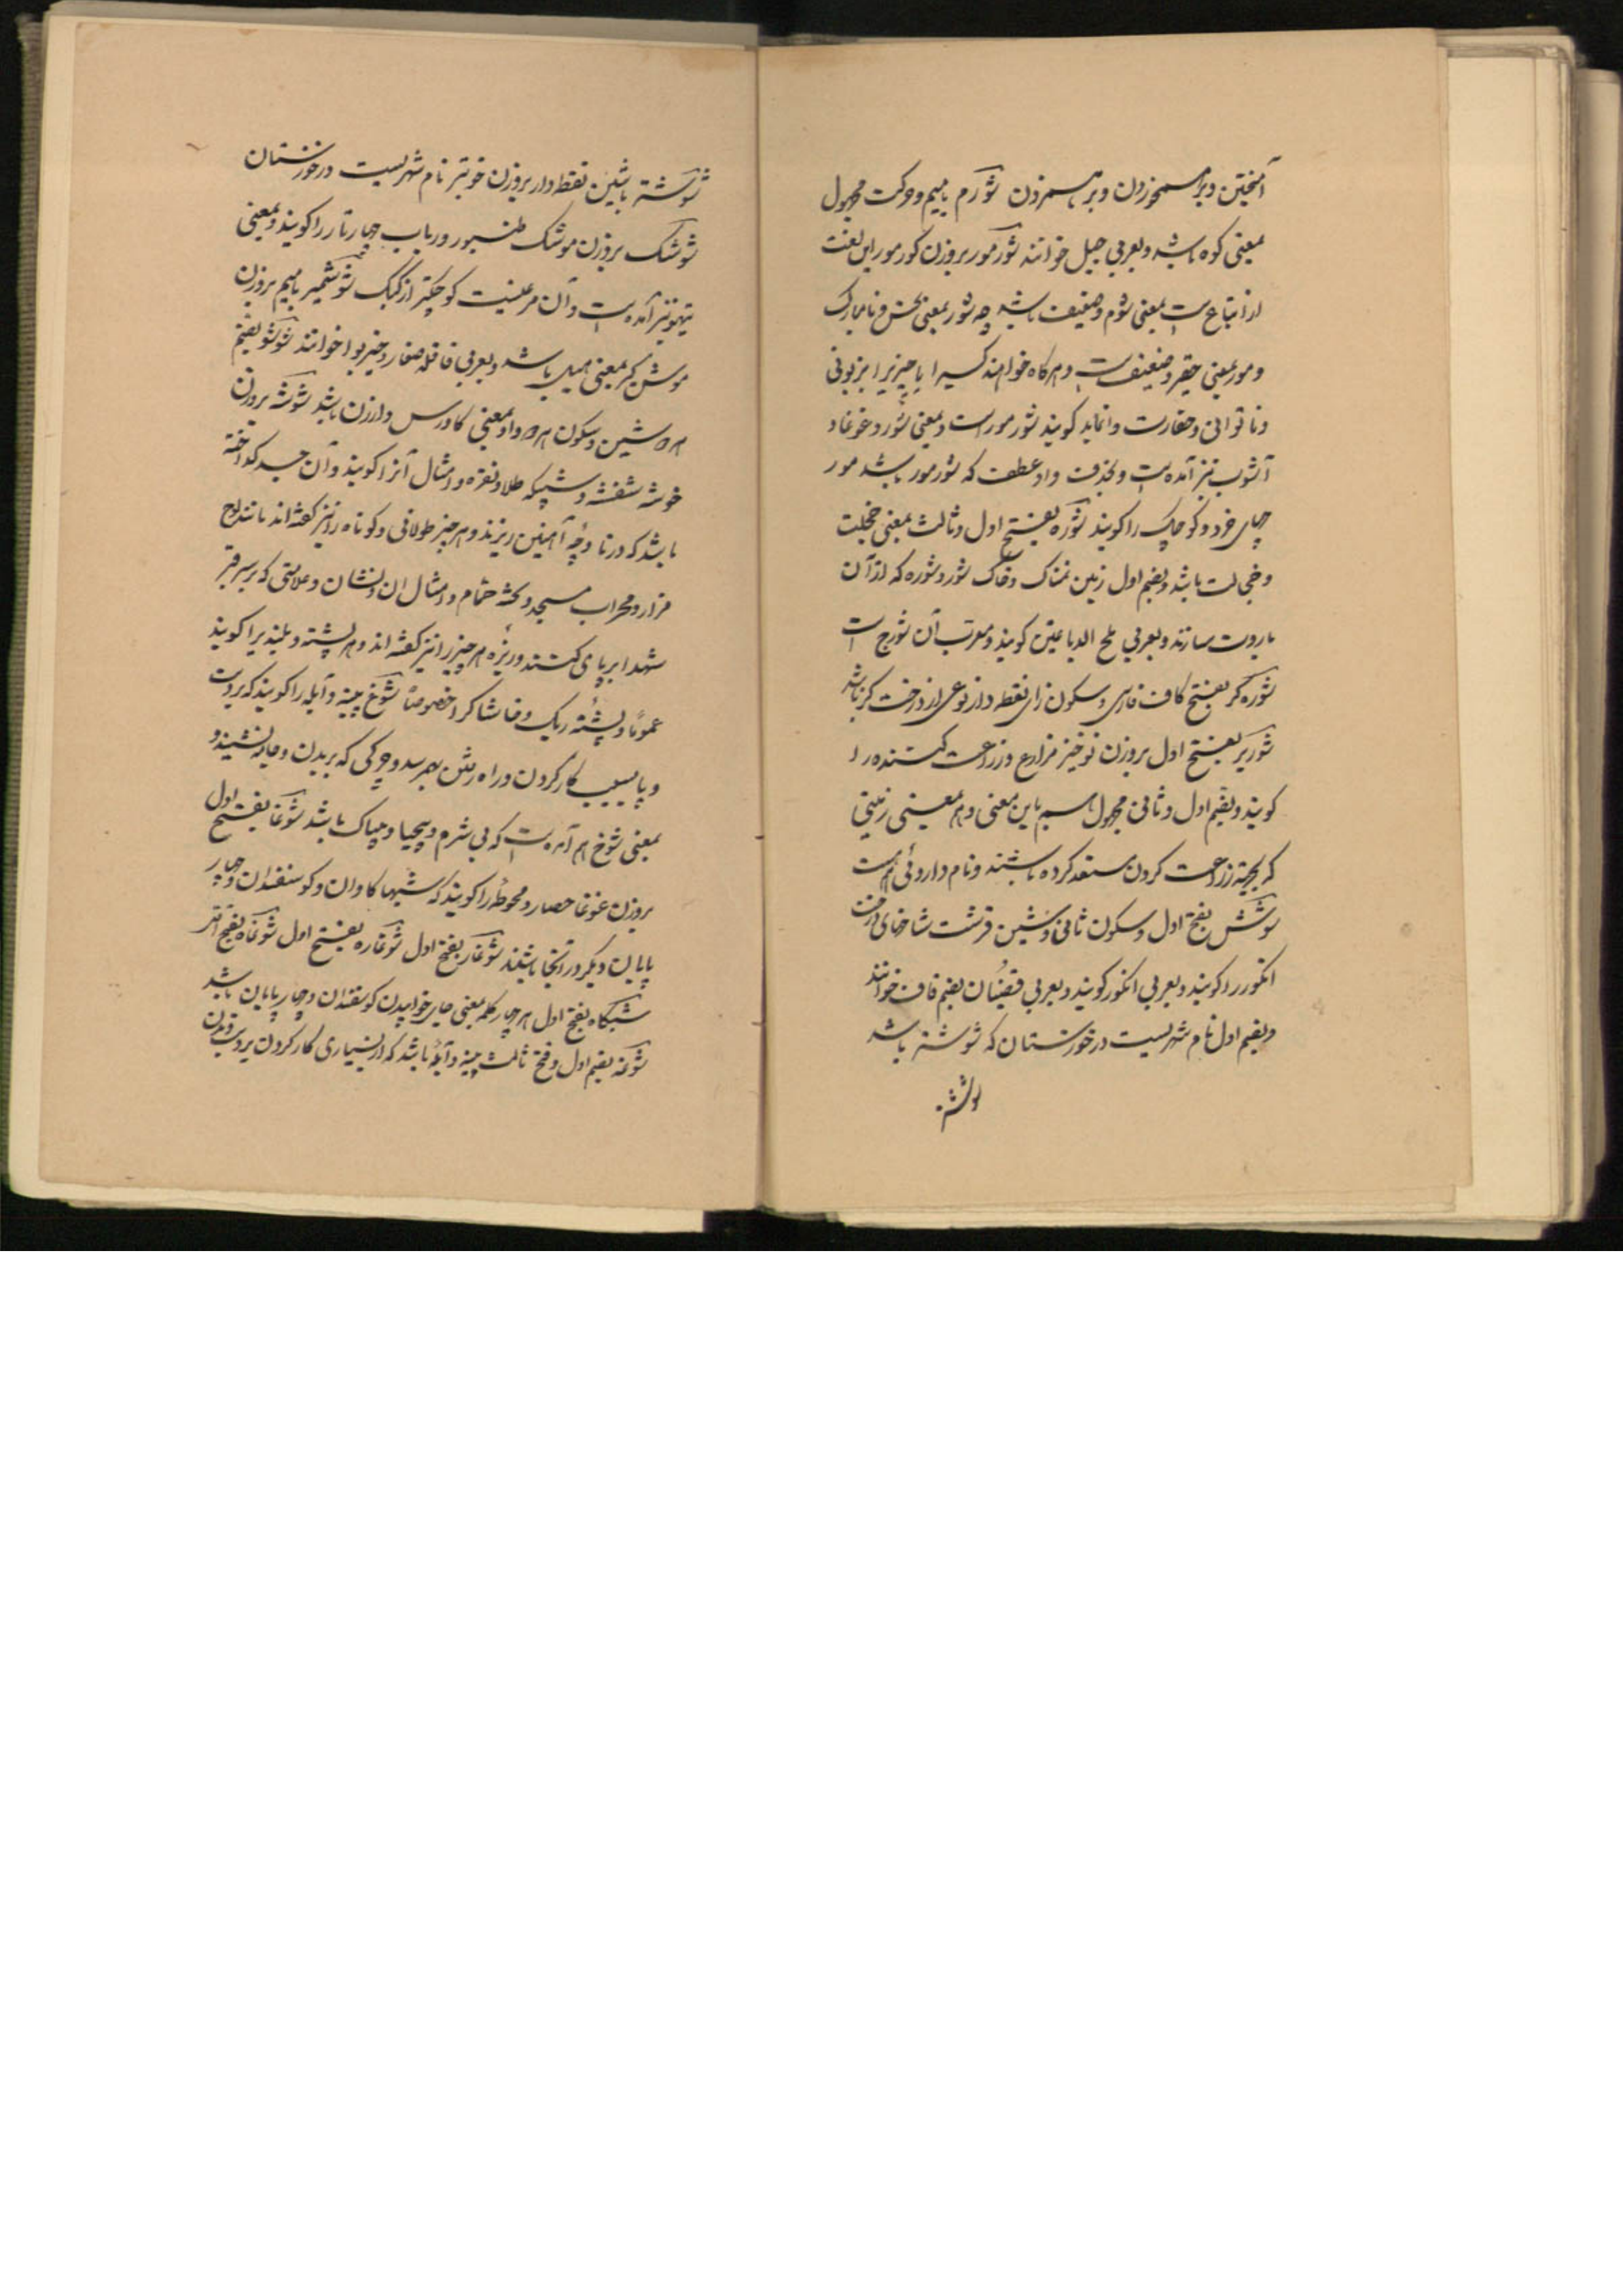 آمیختن و برهمخوردن و برهمزدن شورم بامیم و حرکت مجهول
بمعنی کوه باشد و بعربی جبل خوانند شورمور بروزن کورمور این لغت
از اتباع است بمعنی شوم و ضعیف باشد چه شور بمعنی نحس و نامبارک
و مور بمعنی حقیر و ضعیف است و هرگاه خواهند کسیرا یا چیزیرا بزبونی
و ناتوانی و حقارت وانماید گویند شورمور است و بمعنی شور و غوغا و
آشوب نیز آمده است و بحذف واو عطف که شورمور باشد مور
چهای خرد و کوچک را گویند شوره بفتح اول و ثالث بمعنی خجلت
و خجالت باشد و بضم اول زمین نمناک و خاک شور و شوره که از آن
باروت سازند و بعربی ملح الدباغین گویند و معرب آن شورج است
شوره گز بفتح کاف فارسی و سکون زای نقطه دار نوعی از درخت گز باشد
شوریز بفتح اول بروزن نوخیز مزارع و زراعت کننده را
گویند و بضم اول و ثانی مجهول هم باین معنی و هم بمعنی زمینی
که بجهة زراعت کردن مستعد کرده باشند و نام داروئی هست
شوش بفتح اول و سکون ثانی و شین قرشت شاخهای درخت
انگور را گویند و بعربی انگور گویند و بعربی قضبان بضم قاف خوانند
و بضم اول نام شهریست در خوزستان که شوشتر باشد
شوشتر
شوشتر باشین نقطه دار بروزن خوبتر نام شهریست در خوزستان
شوشک بروزن موشک طنبور و رباب چهارتار را گویند و بمعنی
تیهو نیز آمده است و آن مرغیست کوچکتر از کبک شوشمیر بامیم بروزن
موش گیر بمعنی هیل باشد و بعربی قاقله صغار و خیربوا خوانند شوشو بضم
هر دو شین و سکون هر دو واو بمعنی گاورس و ارزن باشد شوشه بروزن
خوشه شفشه و شبیکه طلا و نقره و امثال آنرا گویند و آن جسد گداخته
باشد که در ناوچهٔ آهنین ریزند و هر چیز طولانی و کوتاه را نیز گفته اند مانند لوح
مزار و محراب مسجد و کتبه حمام و امثال ان و نشان و علامتی که بر سر قبر
شهدا برپای کنند و ریزهٔ هر چیز را نیز گفته اند و هر پشته و بلندیرا گویند
عموما و پشتهٔ ریک و خاشاک را خصوصا شوغ پینه و آبله را گویند که بر دست
و پا بسبب کار کردن و راه رفتن بهم رسد و چرکی که بر بدن و جامه نشیند و
بمعنی شوخ هم آمده است که بی شرم و بیحیا و بیباک باشد شوغا بفتح اول
بروزن غوغا حصار و محوطه را گویند که شبها گاوان و گوسفندان و چهار
پایان دیگر در آنجا باشند شوغار بفتح اول شوغاره بفتح اول شوغاه بفتح اول
شبگاه بفتح اول هر چهار کلمه بمعنی جای خوابیدن گوسفندان و چهارپایان باشد
شوغه بضم اول و فتح ثالث پینه و آبله باشد که از بسیاری کار کردن بر دست و بدن